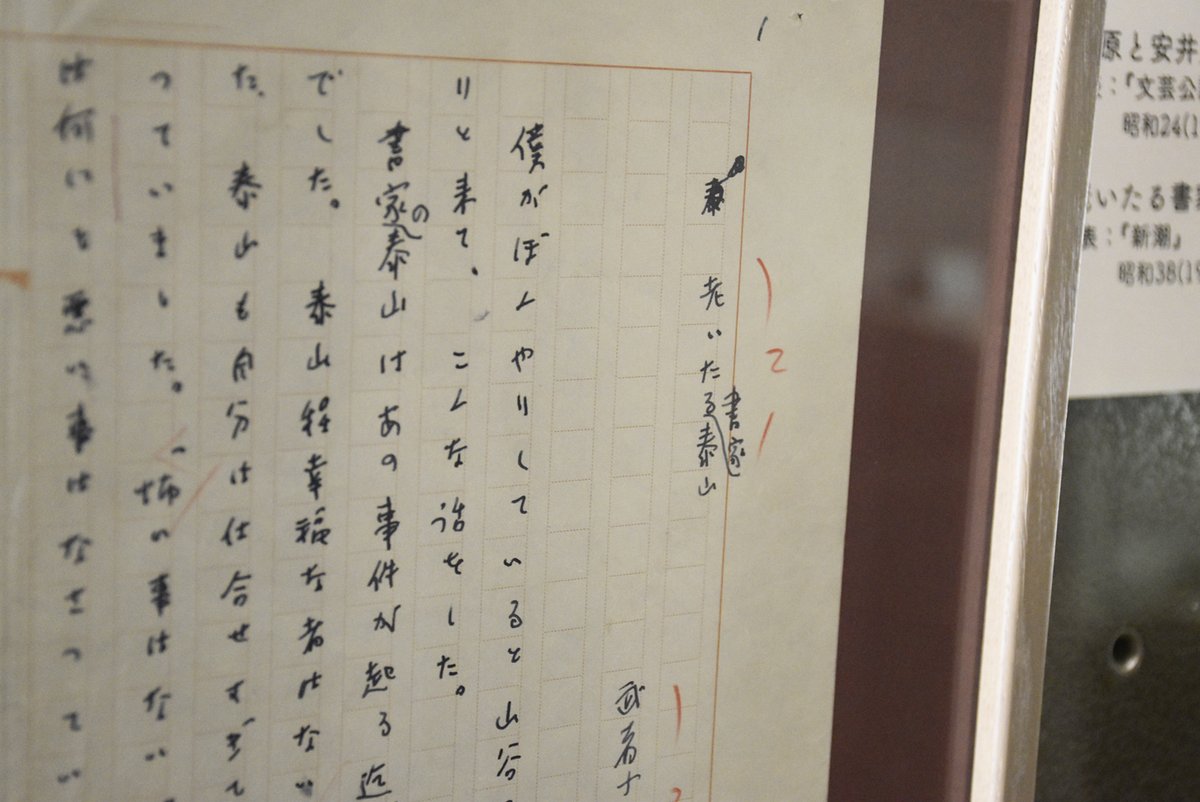 1
老いたる書家泰山
1 2 1
武者小
僕がぼんやりしていると山谷
りと来て、こんな話をした。
書家の泰山はあの事件が起る迄
でした。泰山程幸福な者はない
た、泰山も自分は仕合せすぎて
っていました。「怖い事はない
は何にも悪い事はなさってい
原と安井
表：『文芸公
昭和24(1
いたる書家
表：『新潮』
昭和38(19